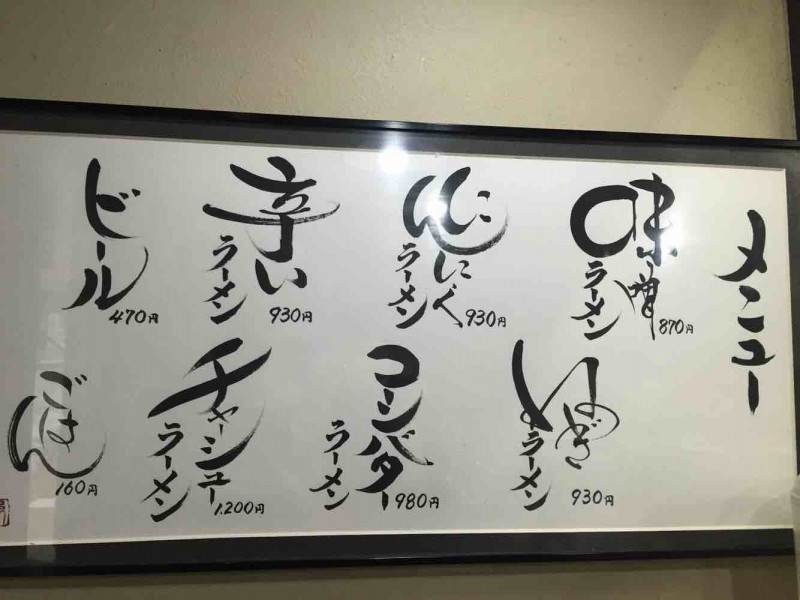 メニュー
味噌
ラーメン
870円
にんにく
ラーメン
930円
辛い
ラーメン
930円
ビール
470円
ねぎ
ラーメン
930円
コーンバター
ラーメン
980円
チャーシュー
ラーメン
1,200円
ごはん
160円